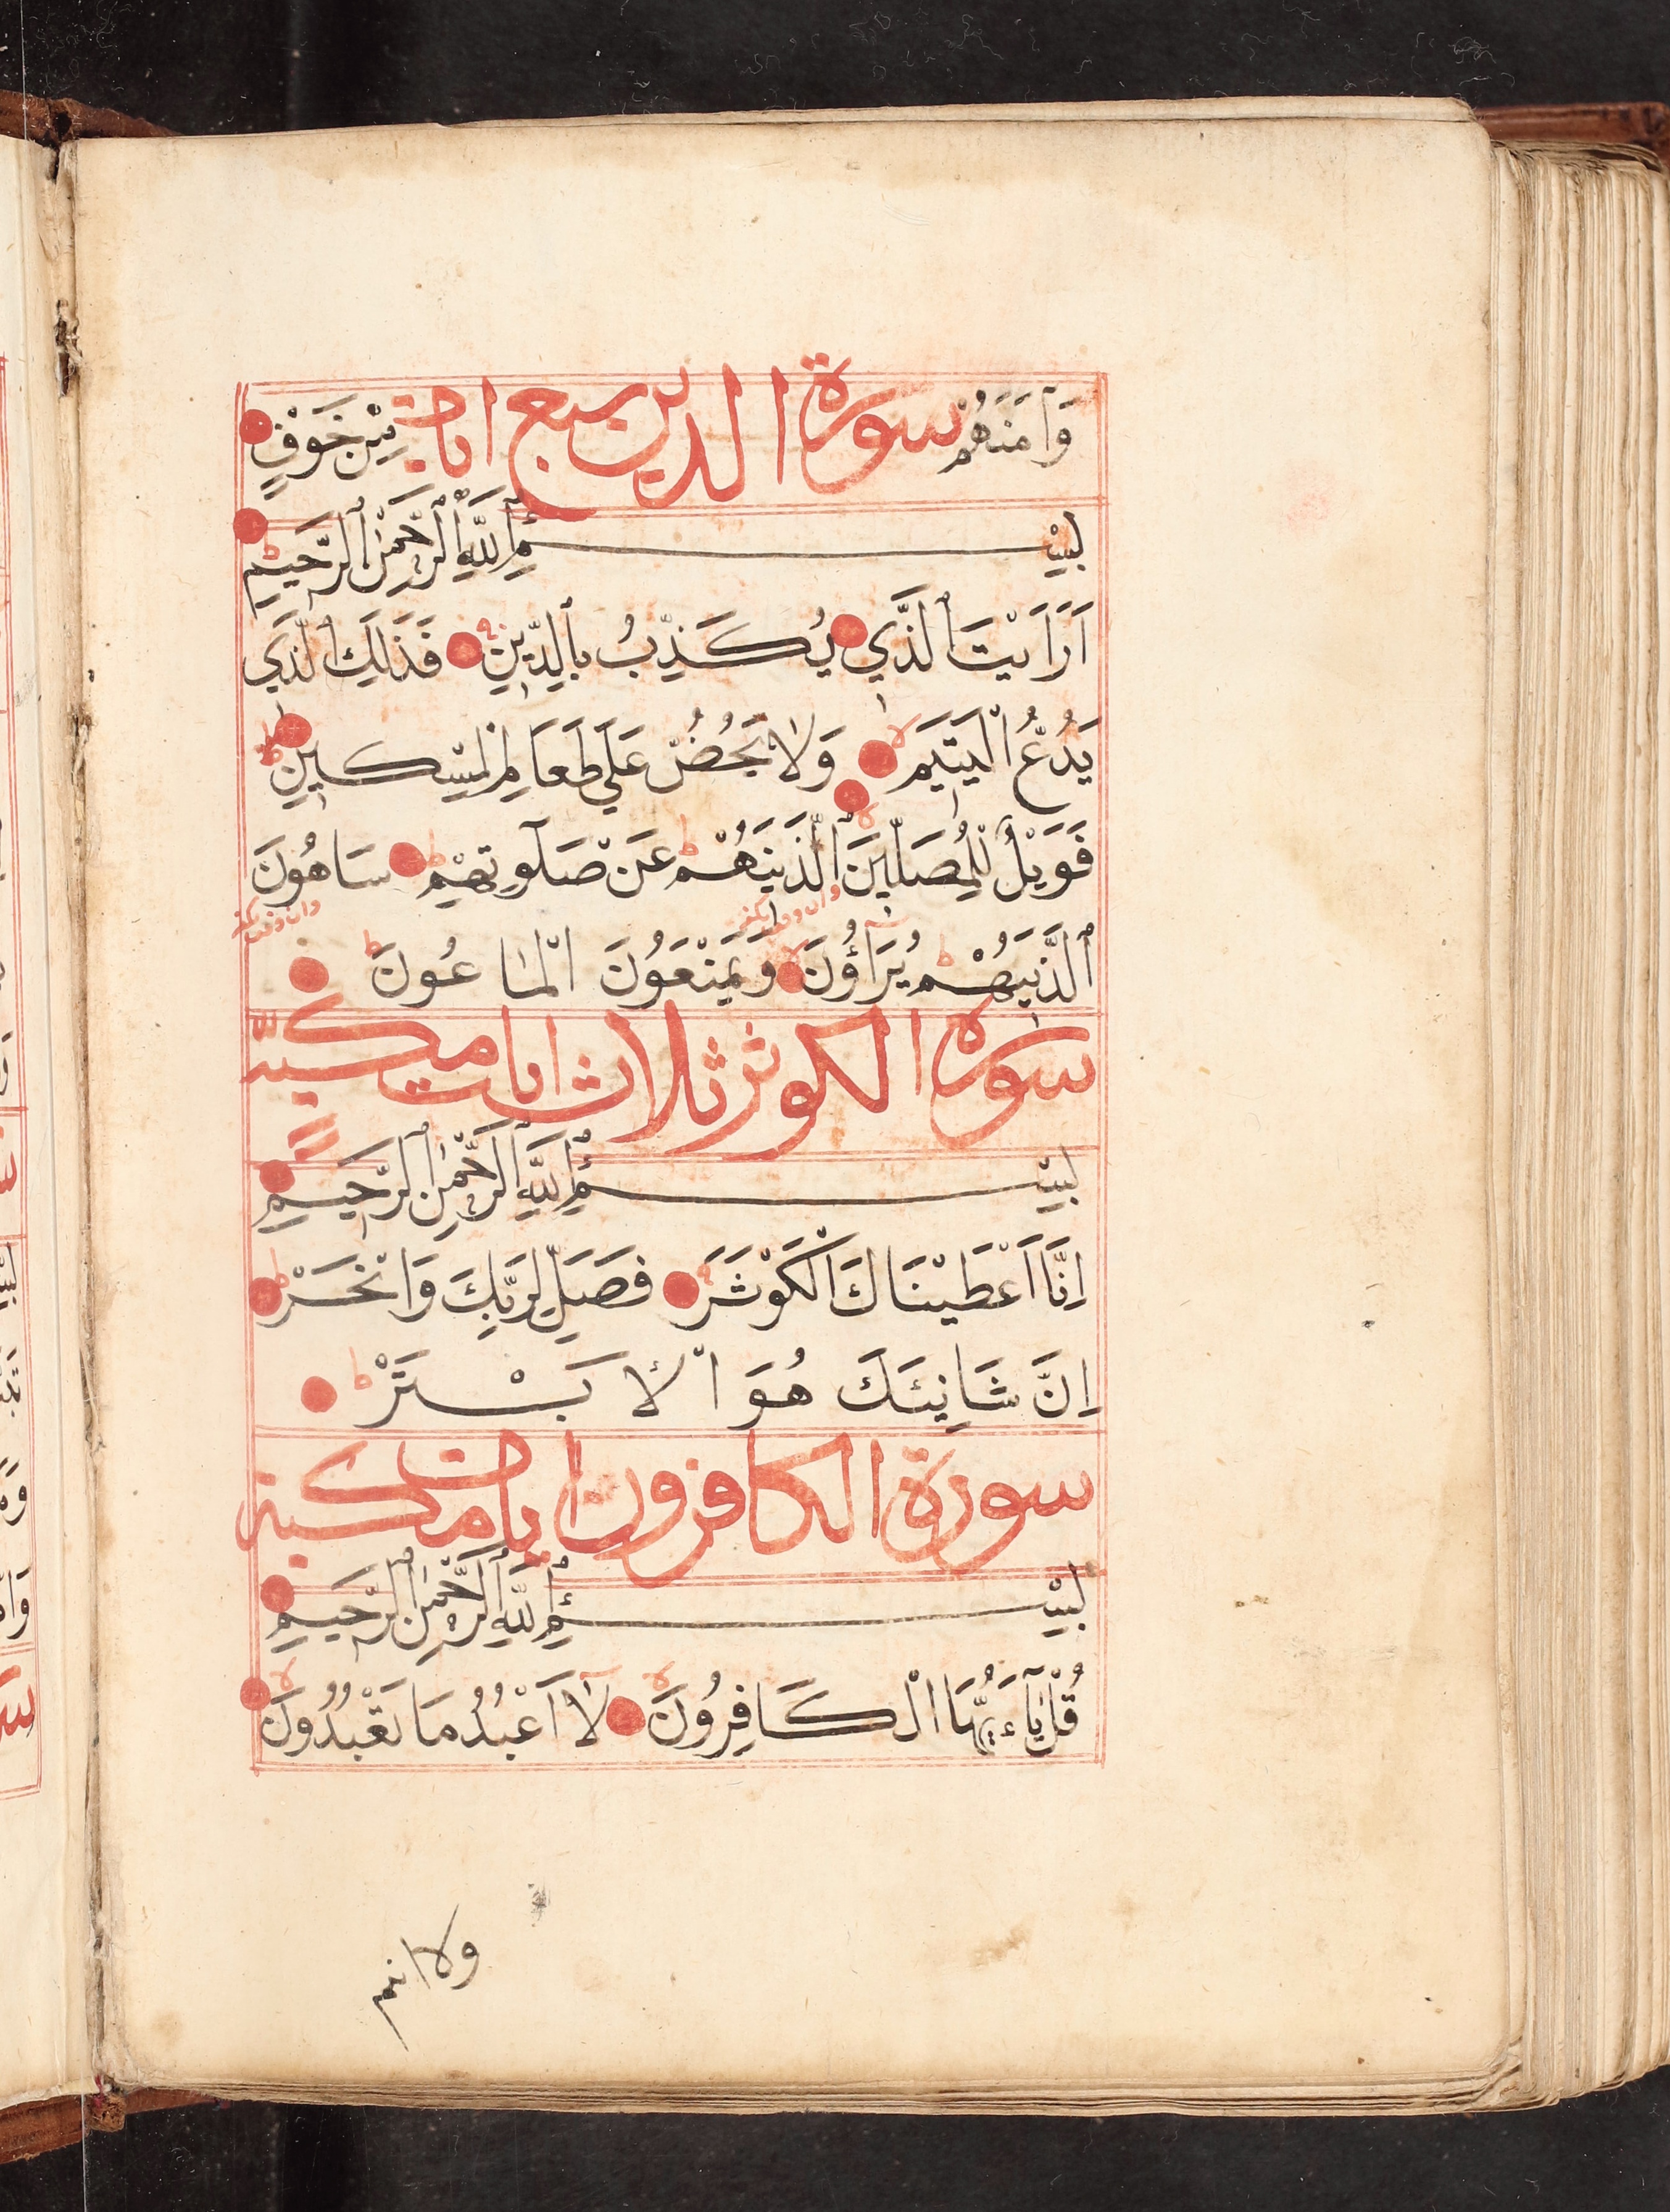 وَآمَنَهُمْ سورة الدين سبع ايات مِنْ خَوْفٍ
بِسْمِ ٱللَّهِ ٱلرَّحْمٰنِ ٱلرَّحِيمِ
اَرَاَيْتَ ٱلَّذِي يُكَذِّبُ بِٱلدِّينِ فَذَلِكَ ٱلَّذِي
يَدُعُّ الْيَتِيمَ وَلَا يَحُضُّ عَلَي طَعَامِ الْمِسْكِينِ
فَوَيْلٌ لِّلْمُصَلِّينَ ٱلَّذِينَ هُمْ عَنْ صَلَوتِهِمْ سَاهُونَ
ٱلَّذِينَ هُمْ يُرَآؤُنَ وَيَمْنَعُونَ الْمَاعُونَ
سورة الكوثر ثلاث ايات مكيّة
بِسْمِ ٱللَّهِ ٱلرَّحْمٰنِ ٱلرَّحِيمِ
اِنَّا اَعْطَيْنَاكَ الْكَوْثَرَ فَصَلِّ لِرَبِّكَ وَانْحَرْ
اِنَّ شَانِئَكَ هُوَ الْاَبْتَرْ
سورة الكافرون ايات مكية
بِسْمِ ٱللَّهِ ٱلرَّحْمٰنِ ٱلرَّحِيمِ
قُلْ يَآءَيُّهَا الْكَافِرُونَ لَآ اَعْبُدُ مَا تَعْبُدُونَ
ولا انتم